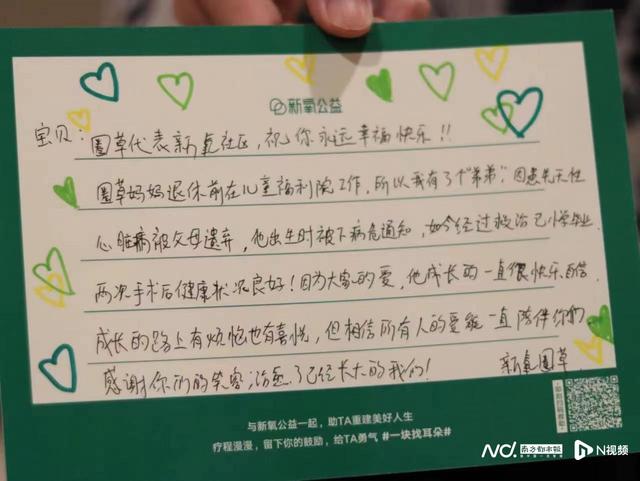 新氧公益
宝贝：
圈草代表新氧社区，祝你永远幸福快乐!!
圈草妈妈退休前在儿童福利院工作，所以我有了个“弟弟”。因患先天性
心脏病被父母遗弃，他出生时被下病危通知，如今经过救治已小学毕业.
两次手术后健康状况良好！因为大家的爱，他成长的一直很快乐、自信.
成长的路上有烦恼也有喜悦，但相信所有人的爱能一直陪伴你们
感谢你们的笑容治愈了已经长大的我们！
新氧圈草
与新氧公益一起，助TA重建美好人生
疗程漫漫，留下你的鼓励，给TA勇气 #一块找耳朵#
南方都市报
N视频